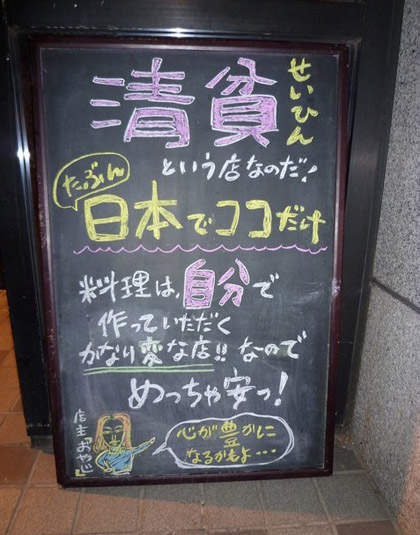 清貧
せいひん
という店なのだ!
たぶん
日本でココだけ
料理は、自分で
作っていただく
かなり変な店!!なので
めっちゃ安っ!
店主「おやじ」
心が豊かに
なるかもよ…